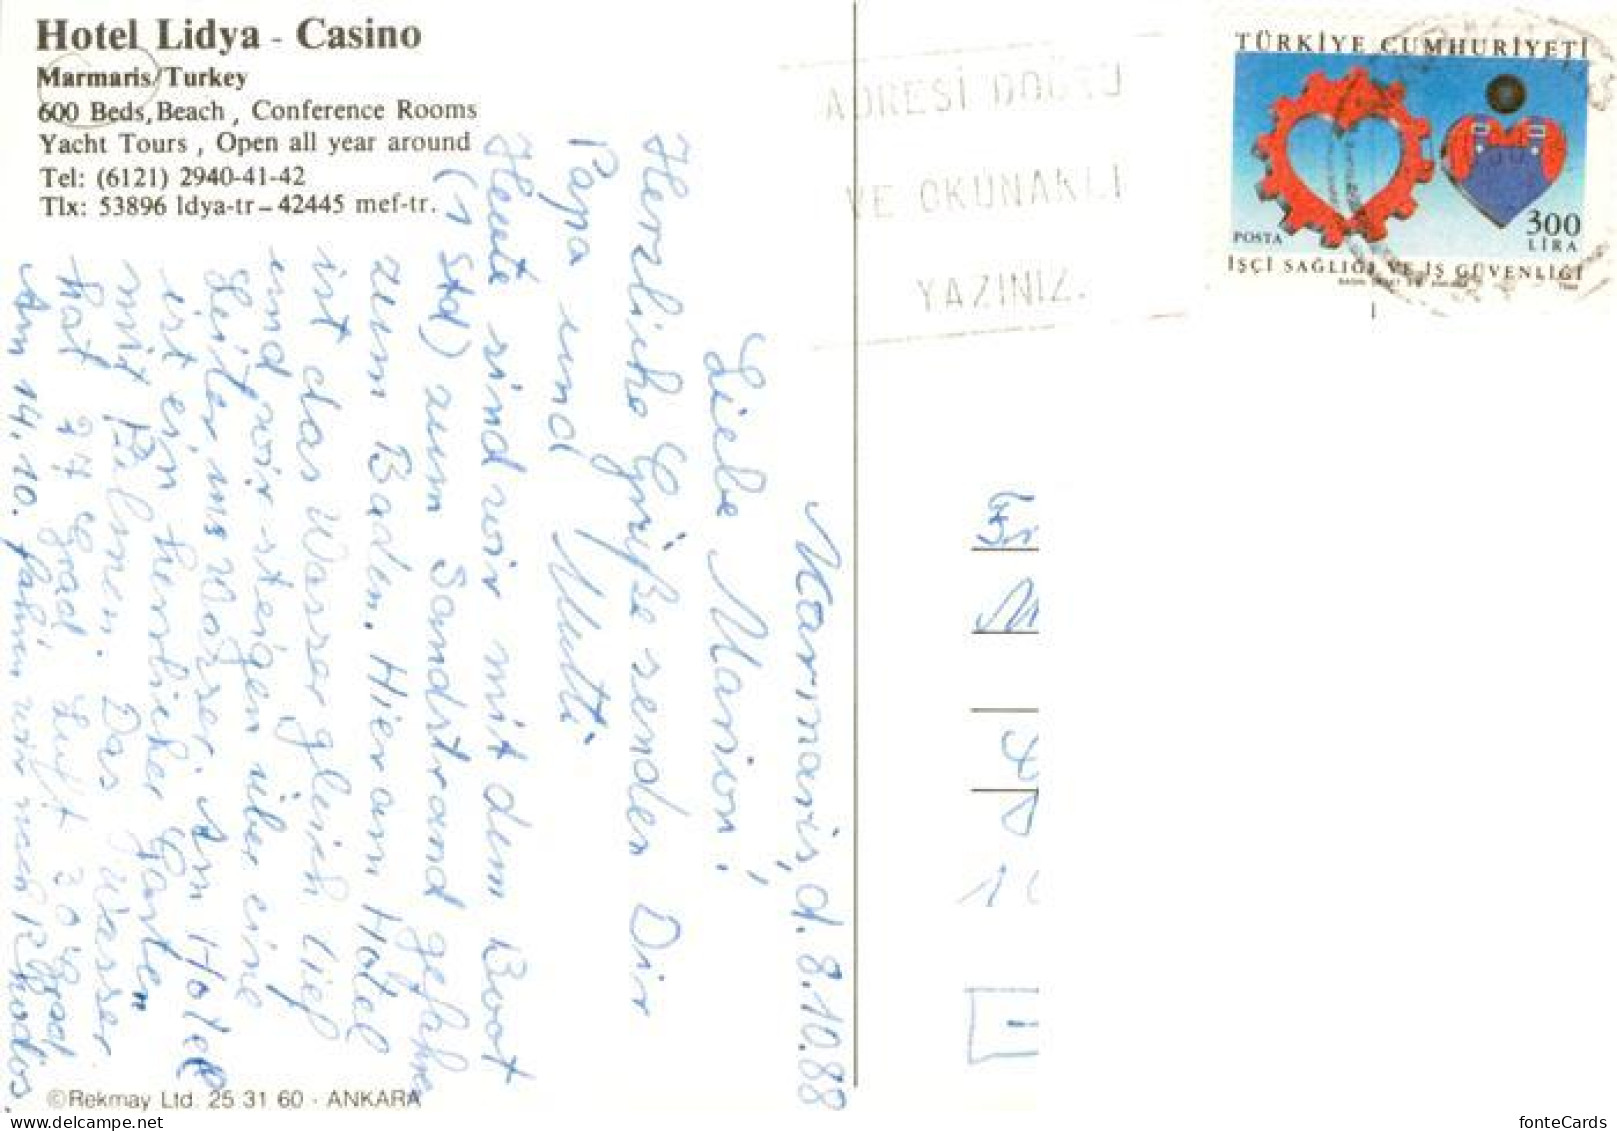 Hotel Lidya - Casino
Marmaris/Turkey
600 Beds, Beach, Conference Rooms
Yacht Tours, Open all year around
Tel: (6121) 2940-41-42
Tlx: 53896 ldya-tr – 42445 mef-tr.
ADRESİ DOĞRU
VE OKUNAKLI
YAZINIZ.
TÜRKİYE CUMHURİYETİ
300
LİRA
POSTA
İŞÇİ SAĞLIĞI VE İŞ GÜVENLİĞİ
Marmaris, d. 8.10.88
Liebe Marion!
Herzliche Grüße senden Dir
Papa und Mutti.
Heute sind wir mit dem Boot
(1 Std) zum Sandstrand gefahren
zum Baden. Hier am Hotel
ist das Wasser gleich tief
und wir steigen über eine
Leiter ins Wasser. Am Hotel
ist ein herrlicher Garten
mit Palmen. Das Wasser
hat 27 Grad Luft 30 Grad
Am 14.10. fahren wir nach Rhodos.
©Rekmay Ltd. 25 31 60 - ANKARA
fonteCards
www.delcampe.net